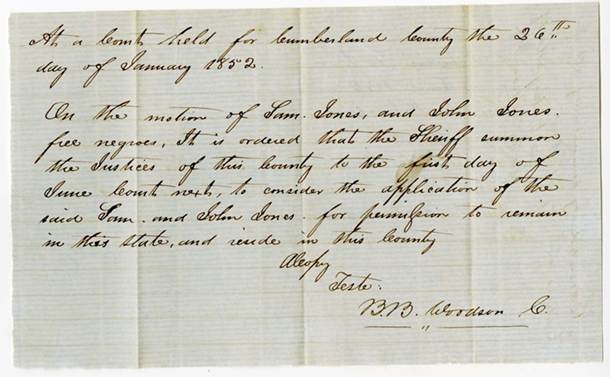 At a Court held for Cumberland County the 26th
day of January 1852.
On the motion of Sam. Jones, and John Jones.
free negroes, It is ordered that the Sheriff summon
the Justices of this County to the first day of
June Court next, to consider the application of the
said Sam. and John Jones. for permission to remain
in this state, and reside in this County
A Copy
Teste:
B. B. Woodson C.